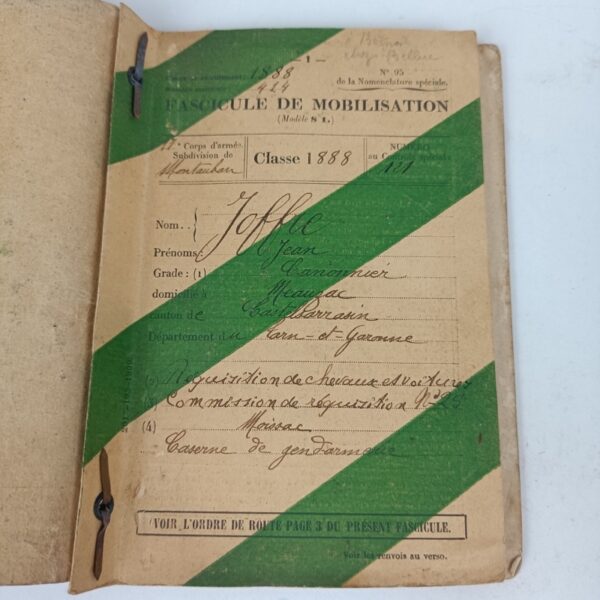 — 1 —
1888
Nº 95
de la Nomenclature spéciale.
424
FASCICULE DE MOBILISATION
(Modèle S 1.)
17e Corps d'armée
Subdivision de
Montauban
Classe 1888
NUMÉRO
au Contrôle spécial
181
Nom.. Joffre
Prénoms: Jean
Grade: (1) Canonnier
domicilié à Meauzac
canton de Castelsarrasin
Département du Tarn-et-Garonne
(2) Réquisition de chevaux et voitures
(3) Commission de réquisition Nº 25
(4) Moissac
Caserne de gendarmerie
VOIR L'ORDRE DE ROUTE PAGE 3 DU PRÉSENT FASCICULE.
Voir les renvois au verso.